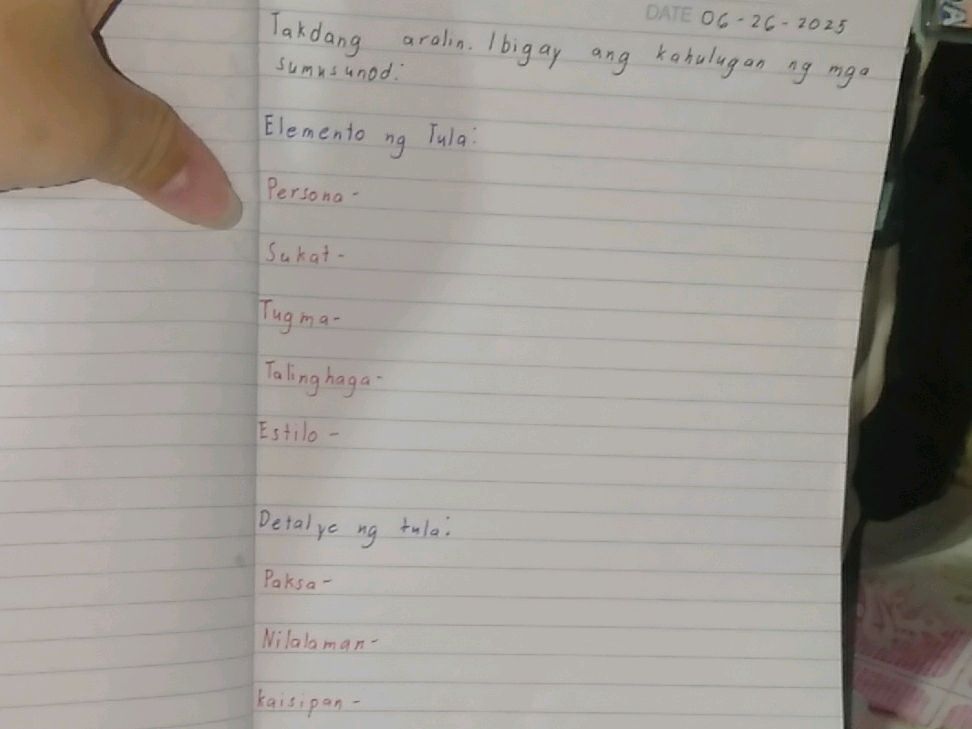 DATE 06-26-2025
Takdang aralin. Ibigay ang kahulugan ng mga
sumusunod:
Elemento ng Tula:
Persona-
Sukat-
Tugma-
Talinghaga-
Estilo-
Detalye ng tula:
Paksa-
Nilalaman-
kaisipan-